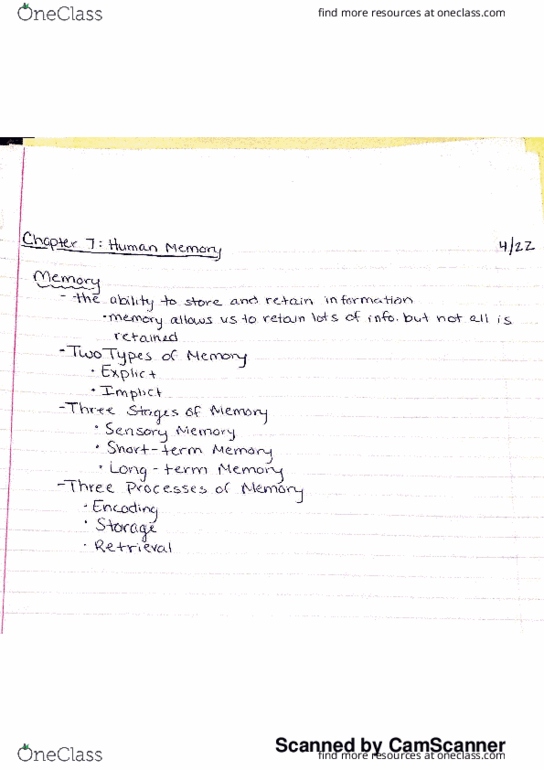 OneClass
find more resources at oneclass.com
Chapter 7: Human Memory
4/22
Memory
- the ability to store and retain information
• memory allows us to retain lots of info. but not all is
retained
- Two Types of Memory
• Explict
• Implict
- Three Stages of Memory
• Sensory Memory
• Short-term Memory
• Long-term Memory
- Three Processes of Memory
• Encoding
• Storage
• Retrieval
Scanned by CamScanner
OneClass
find more resources at oneclass.com